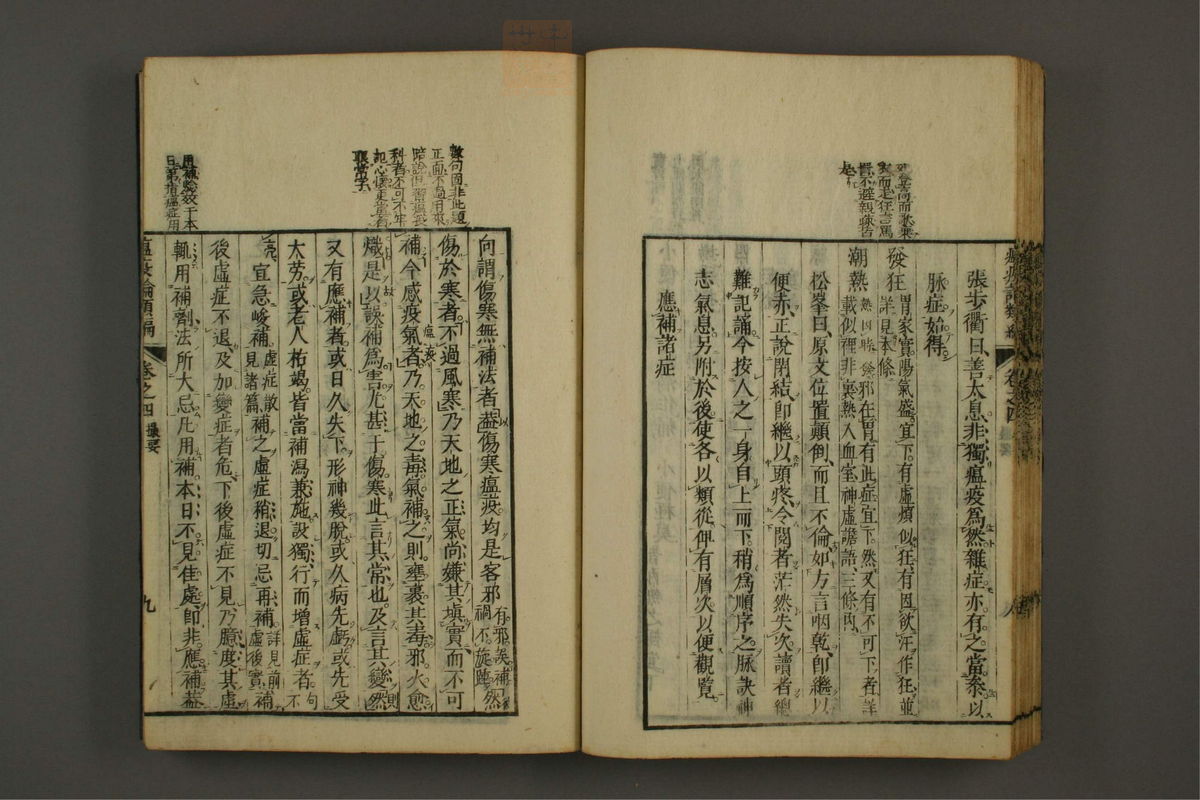 張歩衢曰、善太息、非獨瘟疫爲然、雜症亦有之、當參以
脉症始得、
發狂 胃家實陽氣盛、宜下、有虚煩似狂、有因欲汗作狂、並
詳見本條
潮熱 熱因時發、邪在胃有此症、宜下、然又有不可下者、詳
載似裡非裏、熱入血室、神虚譫語、三條内、
松峯曰、原文位置顛倒、而且不倫、如方言咽乾、即繼以
便赤、正說閉結、即繼以頭疼、令閱者茫然失次、讀者總
難記誦、今按人之一身、自上而下、稍爲順序之、脉訣神
志氣息、另附於後、使各以類從、俾有層次、以便觀覽、
應補諸症
是
數句固非此題
正面、不過用來
科者不可不牢
向謂傷寒無補法者、蓋傷寒瘟疫、均是客邪、有邪誤補、禍不旋踵、然
傷於寒者、不過風寒、乃天地之正氣、尚嫌其塡實而不可
補、今感疫氣者、乃天地之毒氣、補之則壅裹其毒、邪火愈
熾、是以誤補爲害尤甚于傷寒、此言其常也、及言其變、則然
又有應補者、或日久失下、形神幾脫、或久病先虧、或先受
大勞、或老人枯竭、皆當補瀉兼施、設獨行而增虚症者、句不
亮 宜急峻補、虚症散見諸篇、補之虚症稍退、切忌再補、詳見前虚後實、補
後虚症不退、及加變症者危、下後虚症不見、乃臆度其虚、
輒用補劑、法所大忌、凡用補、本日不見佳處、即非應補、蓋
瘟疫論類編 卷之四 撮要 九